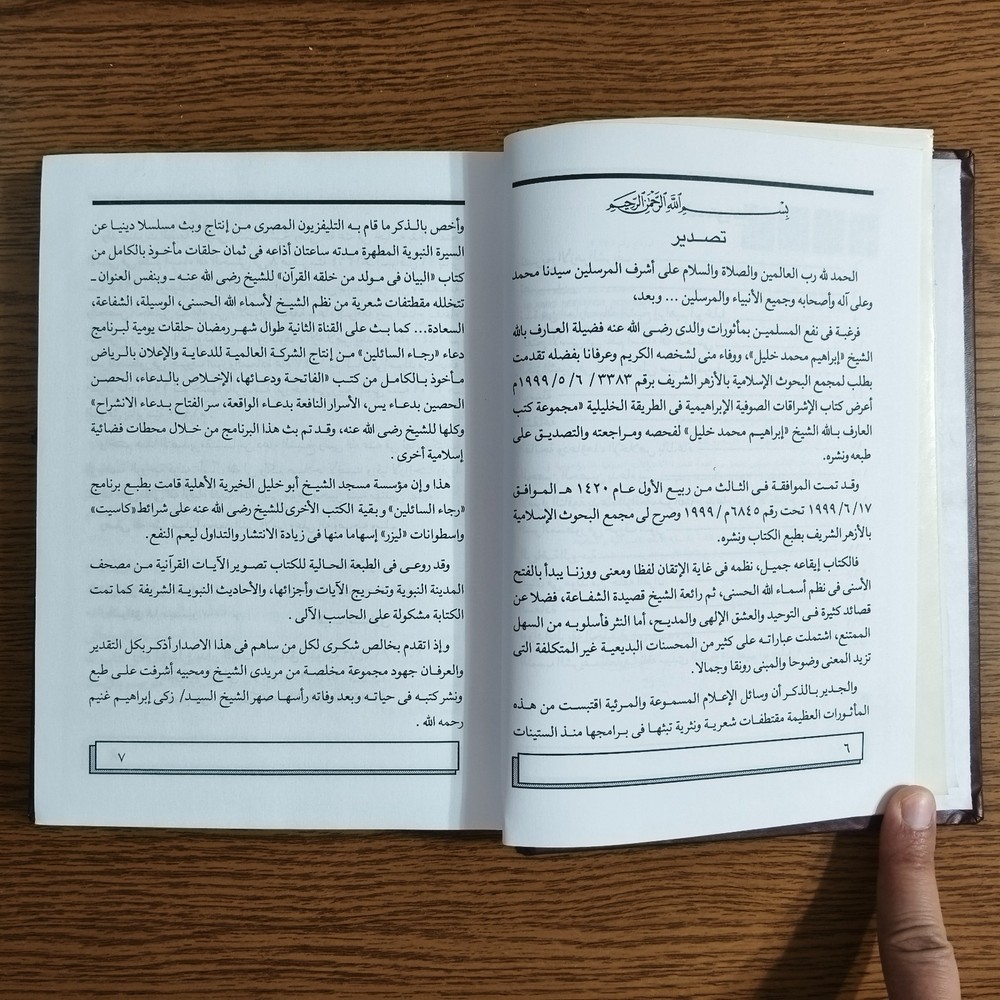 بسم الله الرحمن الرحيم
تصدير
الحمد لله رب العالمين والصلاة والسلام على أشرف المرسلين سيدنا محمد
وعلى آله وأصحابه وجميع الأنبياء والمرسلين ... وبعد،
فرغبة فى نفع المسلمين بمأثورات والدى رضى الله عنه فضيلة العارف بالله
الشيخ «إبراهيم محمد خليل»، ووفاء منى لشخصه الكريم وعرفانا بفضله تقدمت
بطلب لمجمع البحوث الإسلامية بالأزهر الشريف برقم ٣٣٨٣ / ٦ / ٥ / ١٩٩٩م
أعرض كتاب الإشراقات الصوفية الإبراهيمية فى الطريقة الخليلية «مجموعة كتب
العارف بالله الشيخ «إبراهيم محمد خليل» لفحصه ومراجعته والتصديق على
طبعه ونشره.
وقد تمت الموافقة فى الثالث من ربيع الأول عام ١٤٢٠ هـ الموافق
١٧ /٦ / ١٩٩٩ تحت رقم ٦٨٤٥م / ١٩٩٩ وصرح لى مجمع البحوث الإسلامية
بالأزهر الشريف بطبع الكتاب ونشره.
فالكتاب إيقاعه جميل، نظمه فى غاية الإتقان لفظا ومعنى ووزنا يبدأ بالفتح
الأسنى فى نظم أسماء الله الحسنى، ثم رائعة الشيخ قصيدة الشفاعة، فضلا عن
قصائد كثيرة فى التوحيد والعشق الإلهى والمديح، أما النثر فأسلوبه من السهل
الممتنع، اشتملت عباراته على كثير من المحسنات البديعية غير المتكلفة التى
تزيد المعنى وضوحا والمبنى رونقا وجمالا.
والجدير بالذكر أن وسائل الإعلام المسموعة والمرئية اقتبست من هذه
المأثورات العظيمة مقتطفات شعرية ونثرية تبثها فى برامجها منذ الستينات
٦
وأخص بالذكر ما قام به التليفزيون المصرى من إنتاج وبث مسلسلا دينيا عن
السيرة النبوية المطهرة مدته ساعتان أذاعه فى ثمان حلقات مأخوذ بالكامل من
كتاب «البيان فى مولد من خلقه القرآن» للشيخ رضى الله عنه ـ وبنفس العنوان ـ
تتخلله مقطتفات شعرية من نظم الشيخ لأسماء الله الحسنى، الوسيلة، الشفاعة،
السعادة... كما بث على القناة الثانية طوال شهر رمضان حلقات يومية لبرنامج
دعاء «رجاء السائلين» من إنتاج الشركة العالمية للدعاية والإعلان بالرياض
مأخوذ بالكامل من كتب «الفاتحة ودعائها، الإخلاص بالدعاء، الحصن
الحصين بدعاء يس، الأسرار النافعة بدعاء الواقعة، سر الفتاح بدعاء الانشراح»
وكلها للشيخ رضى الله عنه، وقد تم بث هذا البرنامج من خلال محطات فضائية
إسلامية أخرى .
هذا وإن مؤسسة مسجد الشيخ أبو خليل الخيرية الأهلية قامت بطبع برنامج
«رجاء السائلين» وبقية الكتب الأخرى للشيخ رضى الله عنه على شرائط «كاسيت»
واسطوانات «ليزر» إسهاما منها فى زيادة الانتشار والتداول ليعم النفع.
وقد روعى فى الطبعة الحالية للكتاب تصوير الآيات القرآنية من مصحف
المدينة النبوية وتخريج الآيات وأجزائها، والأحاديث النبوية الشريفة كما تمت
الكتابة مشكولة على الحاسب الآلى .
وإذا تقدم بخالص شكرى لكل من ساهم فى هذا الاصدار أذكر بكل التقدير
والعرفان جهود مجموعة مخلصة من مريدى الشيخ ومحبيه أشرفت على طبع
ونشر كتبه فى حياته وبعد وفاته رأسها صهر الشيخ السيد/ زكى إبراهيم غنيم
رحمه الله .
٧